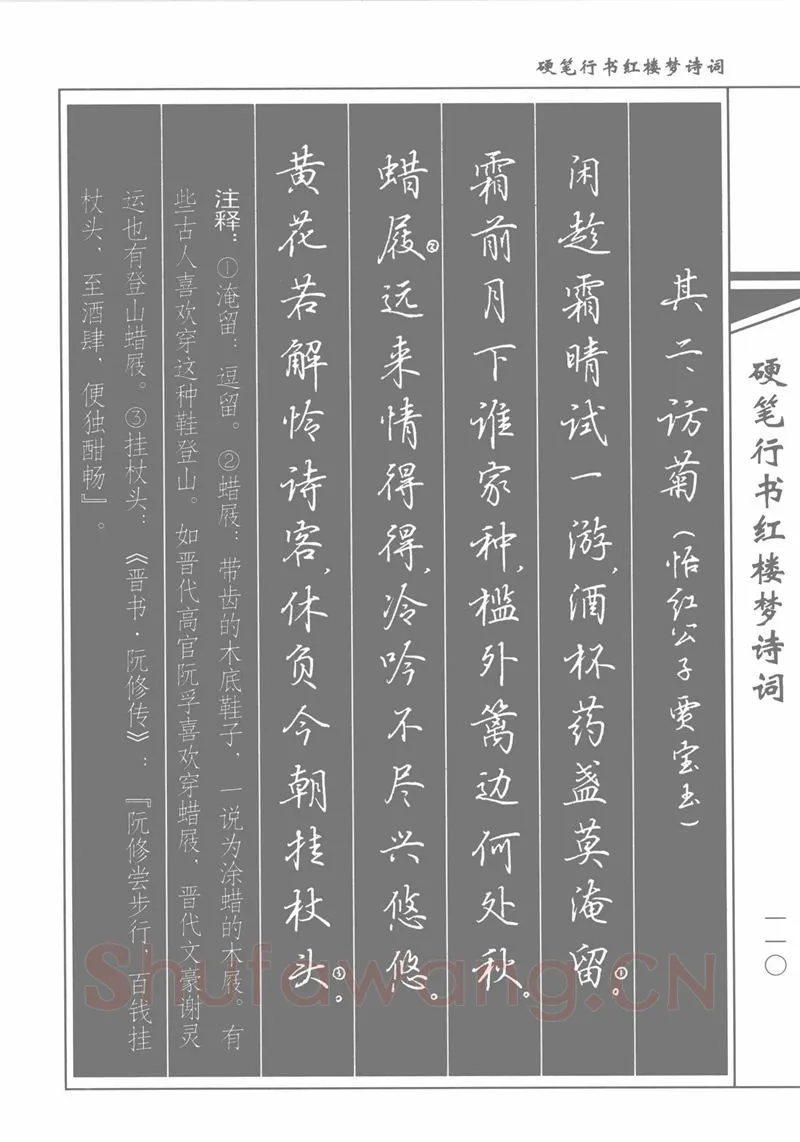 硬笔行书红楼梦诗词
硬笔行书红楼梦诗词
一一〇
其二、访菊(怡红公子贾宝玉)
闲趁霜晴试一游,酒杯药盏莫淹留①。
霜前月下谁家种,槛外篱边何处秋。
蜡屐②远来情得得,冷吟不尽兴悠悠。
黄花若解怜诗客,休负今朝挂杖头③。
注释:①淹留:逗留。②蜡屐:带齿的木底鞋子,一说为涂蜡的木屐。有
些古人喜欢穿这种鞋登山。如晋代高官阮孚喜欢穿蜡屐,晋代文豪谢灵
运也有登山蜡屐。③挂杖头:《晋书·阮修传》:『阮修尝步行,百钱挂
杖头,至酒肆,便独酣畅』。
Shufawang.CN